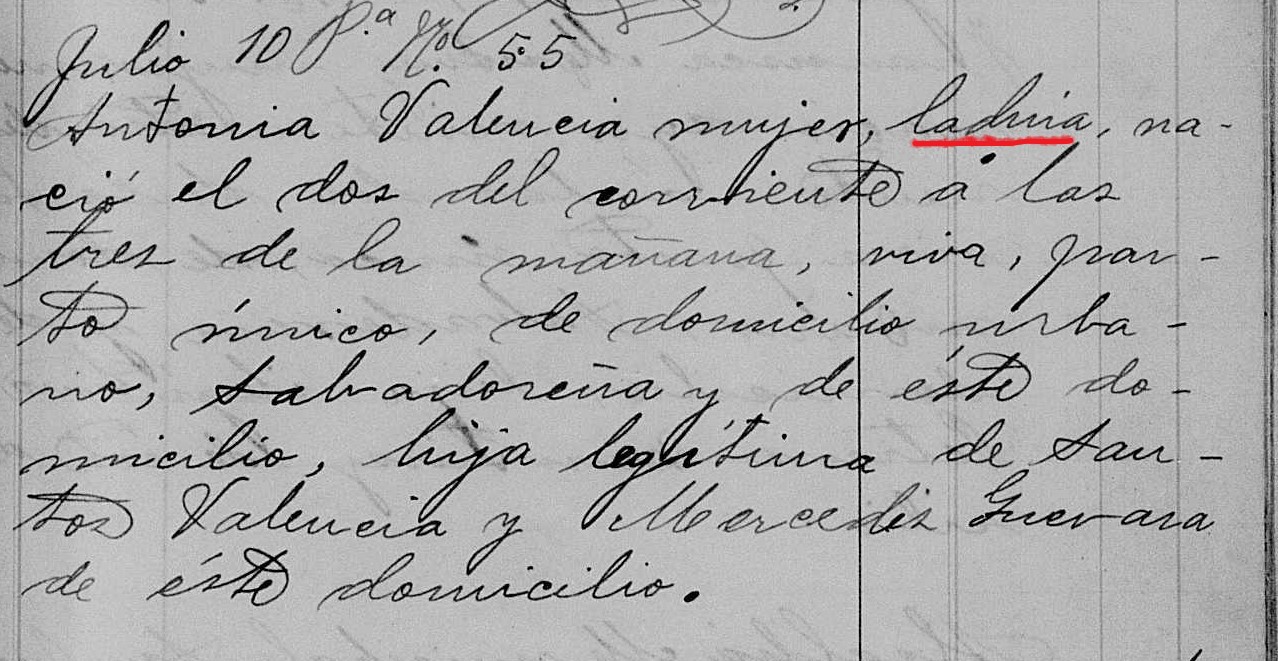 Julio 10 P.a No. 55
Antonia Valencia mujer, ladina, na-
ció el dos del corriente á las
tres de la mañana, viva, par-
to único, de domicilio urba-
no, Salvadoreña y de éste do-
micilio, hija legítima de San-
tos Valencia y Mercedes Guevara
de éste domicilio.